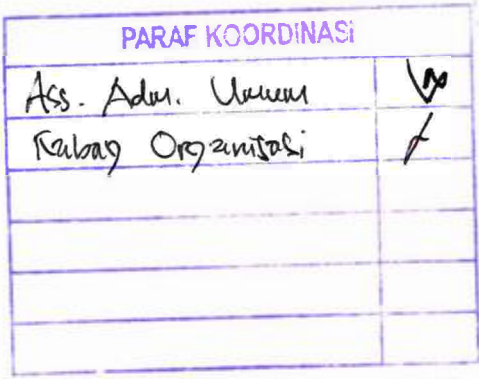 PARAF KOORDINASI
Ass. Adm. Umum
Kabag Organisasi